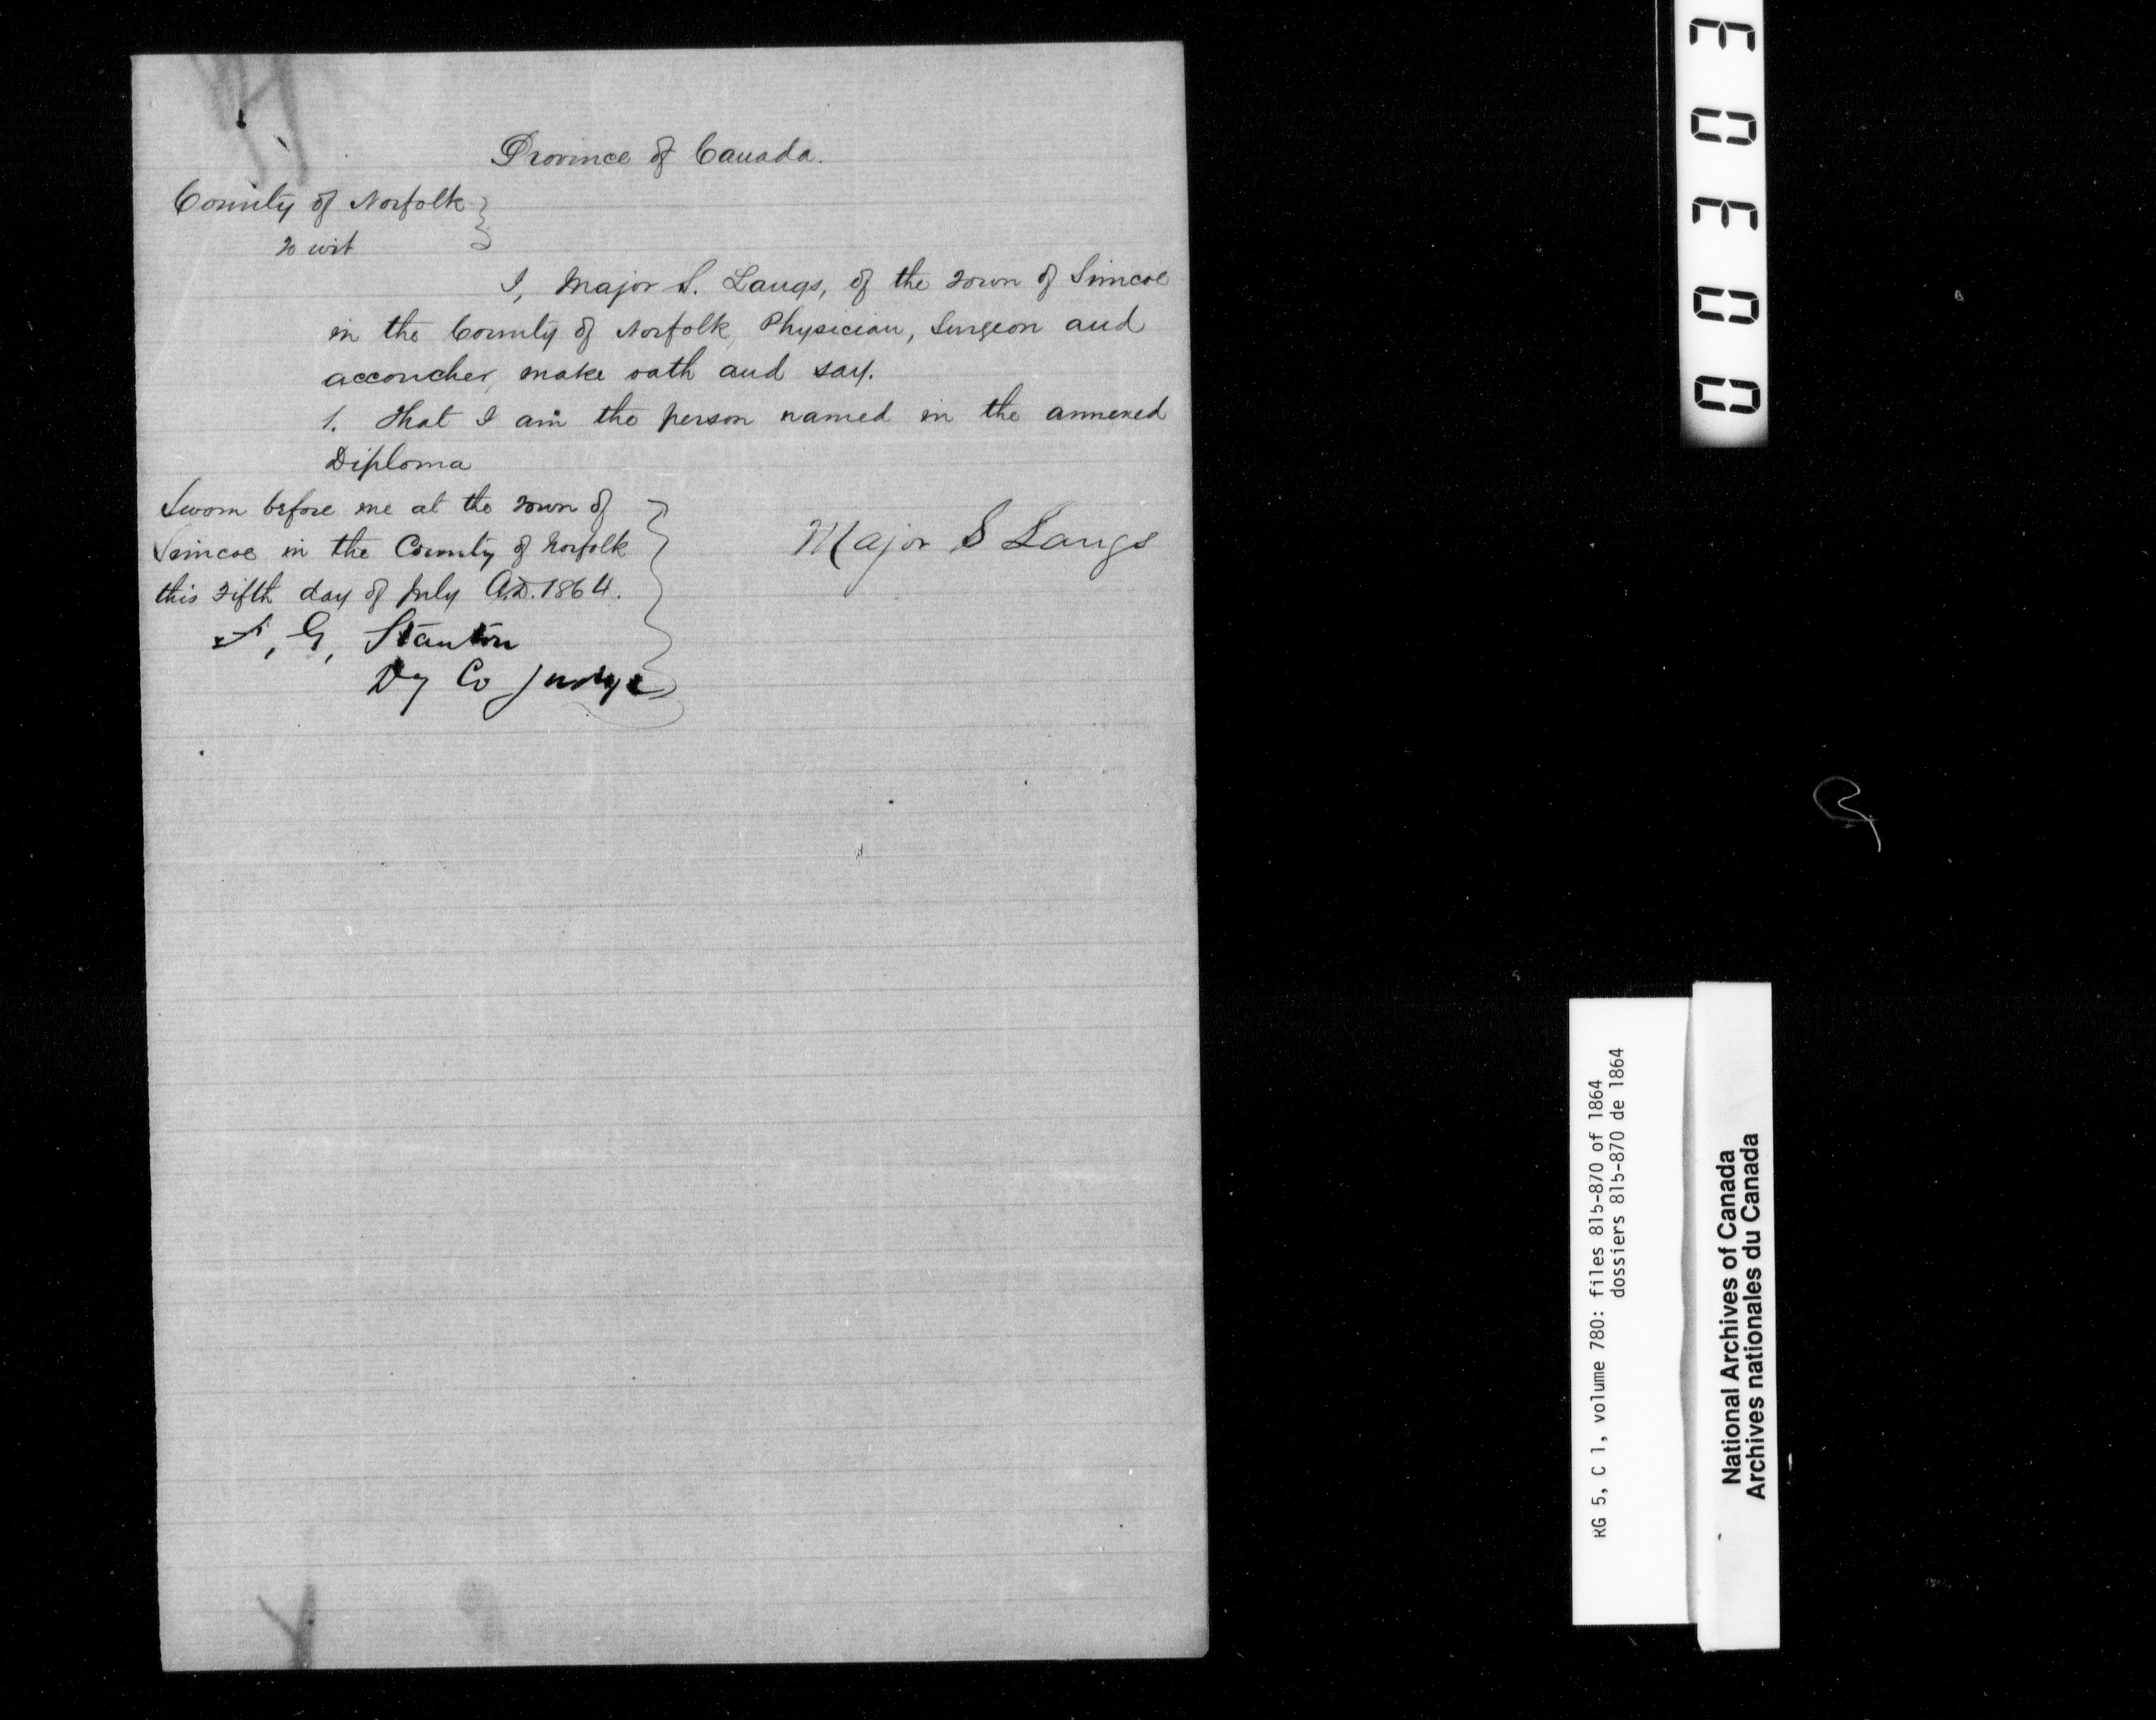 Province of Canada.
County of Norfolk }
To wit
I, Major S. Langs, of the Town of Simcoe
in the County of Norfolk, Physician, Surgeon and
accoucher, make oath and say.
1. That I am the person named in the annexed
Diploma
Sworn before me at the Town of
Simcoe in the County of Norfolk
this Fifth day of July A.D. 1864.
G, Stanton
Dy Co Judge
Major S Langs
RG 5, C 1, volume 780: files 815-870 of 1864
dossiers 815-870 de 1864
National Archives of Canada
Archives nationales du Canada